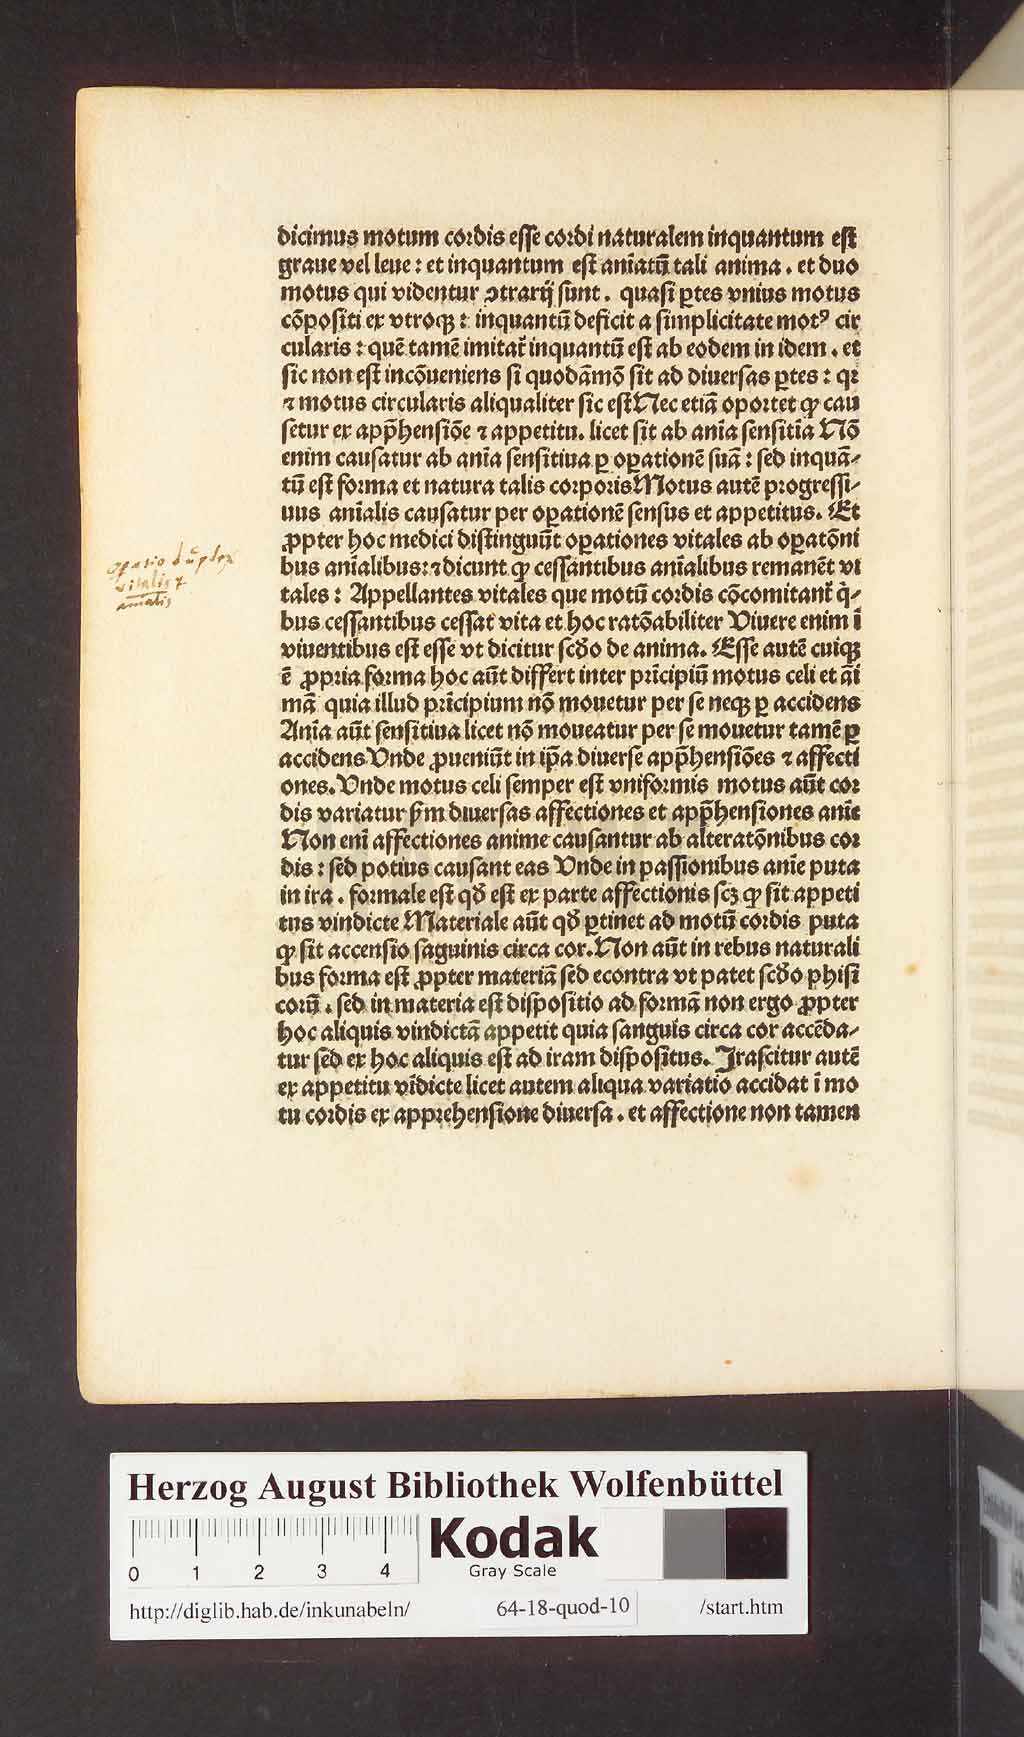 dicimus motum cordis esse cordi naturalem inquantum est
graue vel leue : et inquantum est aniatū tali anima . et duo
motus qui videntur ↄtrarij sunt . quasi ꝑtes vnius motus
cōpositi ex vtroqꝫ : inquantū deficit a simplicitate motꝰ cir
cularis : quē tamē imitat᷑ inquantū est ab eodem in idem . et
sic non est incōueniens si quodāmō sit ad diuersas ꝑtes : qꝛ
⁊ motus circularis aliqualiter sic est Nec etiā oportet ꝙ cau
setur ex app̄hensiōe ⁊ appetitu . licet sit ab ania sensitia Nō
enim causatur ab ania sensitiua ꝑ oꝑationē suā : sed inquā-
tū est forma et natura talis corporis Motus autē progressi-
uus anialis causatur per oꝑationē sensus et appetitus . Et
ꝓpter hoc medici distinguūt oꝑationes vitales ab oꝑatōni
bus anialibus : ⁊ dicunt ꝙ cessantibus anialibus remanēt vi
tales : Appellantes vitales que motū cordis cōcomitant᷑ q̇-
bus cessantibus cessat vita et hoc ratōabiliter Viuere enim ī
viuentibus est esse vt dicitur scd̄o de anima . Esse autē cuiqꝫ
ē ꝓpria forma hoc aūt differt inter prīcipiū motus celi et āi
mā quia illud prīcipium nō mouetur per se neqꝫ ꝑ accidens
Ania aūt sensitiua licet nō moueatur per se mouetur tamē ꝑ
accidens Vnde ꝓueniūt in ip̄a diuerse app̄hensiōes ⁊ affecti
ones . Vnde motus celi semper est vniformis motus aūt cor
dis variatur ẜm diuersas affectiones et app̄hensiones anīe
Non enī affectiones anime causantur ab alteratōnibus cor
dis : sed potius causant eas Vnde in passionibus anīe puta
in ira . formale est qd̄ est ex parte affectionis scꝫ ꝙ sit appeti
tus vindicte Materiale aūt qd̄ ꝑtinet ad motū cordis puta
ꝙ sit accensio saguinis circa cor . Non aūt in rebus naturali
bus forma est ꝓpter materiā sed econtra vt patet scd̄o phisi
corū . sed in materia est dispositio ad formā non ergo ꝓpter
hoc aliquis vindictā appetit quia sanguis circa cor accēda-
tur sed ex hoc aliquis est ad iram dispositus . Irascitur autē
ex appetitu vīdicte licet autem aliqua variatio accidat ī mo
tu cordis ex apprehensione diuersa . et affectione non tamen
oꝑatio duplex
vitalis ⁊
aīalis
Herzog August Bibliothek Wolfenbüttel
0 1 2 3 4
Kodak
Gray Scale
http://diglib.hab.de/inkunabeln/ 64-18-quod-10 /start.htm